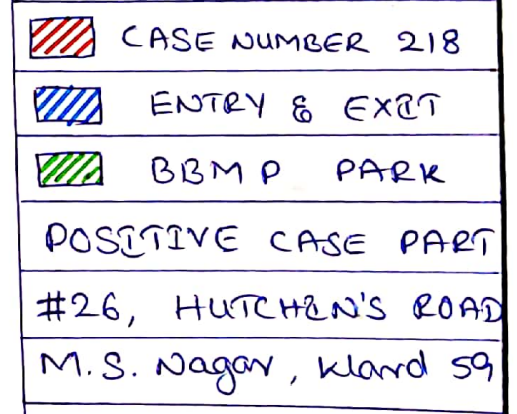 CASE NUMBER 218
ENTRY & EXIT
BBMP PARK
POSITIVE CASE PART
#26, HUTCHIN'S ROAD
M.S. Nagar, Ward 59